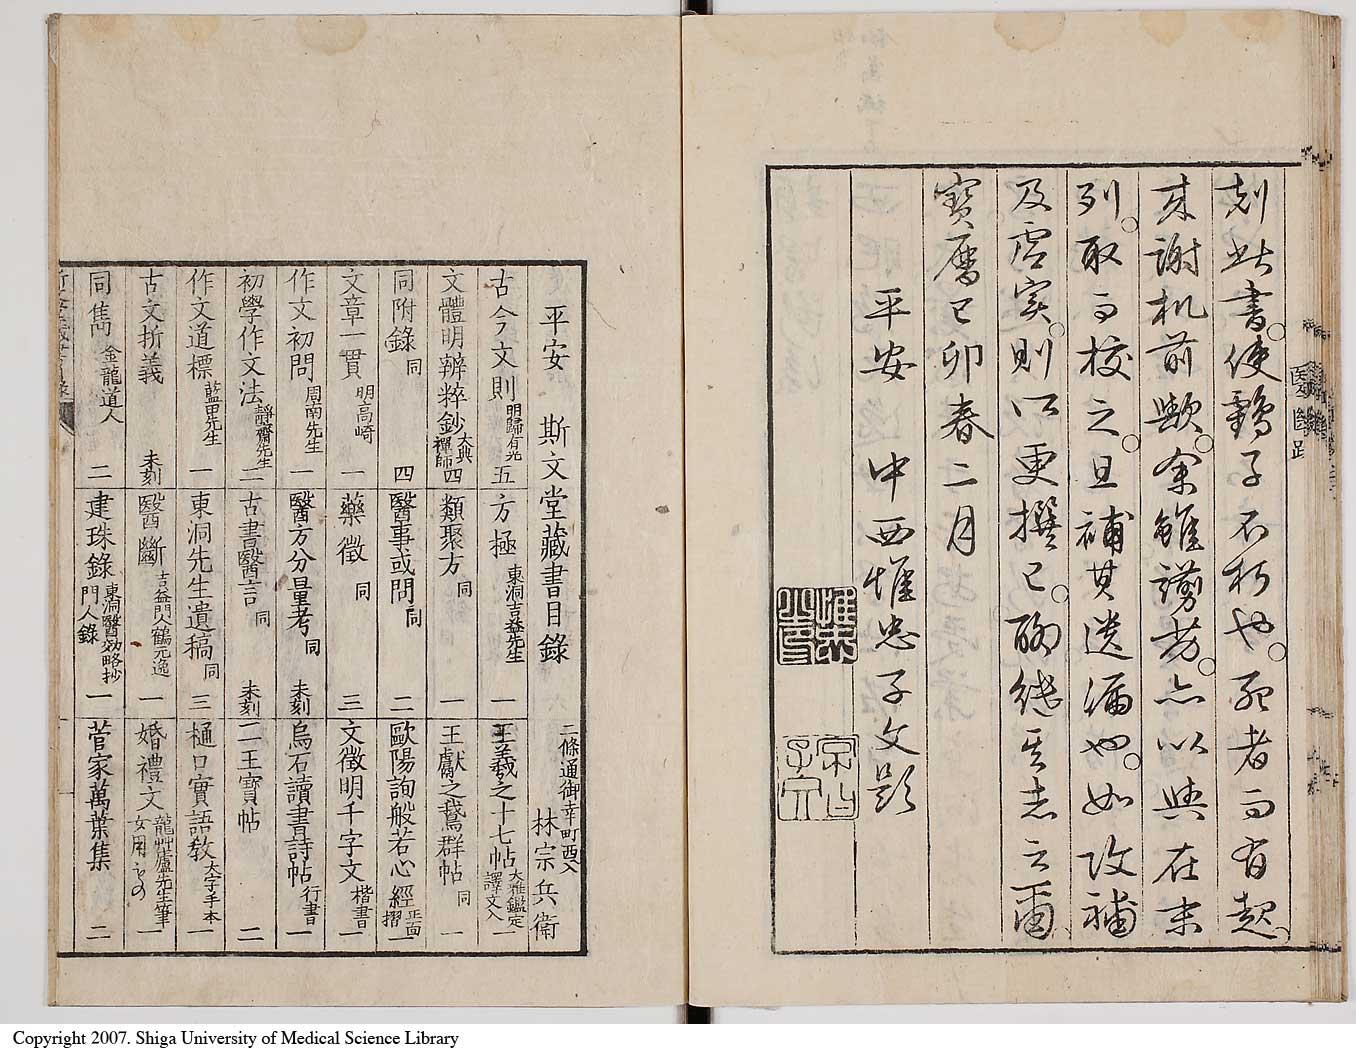 刻此書使鶴子不朽也死者而有起
来謝机前歟余雖謭劣亦以與在末
列取而校之且補其遺漏也如改補
及虚実則以更撰已聊継其志云爾
寳曆己卯春二月
平安 中西惟忠子文題
医断跋
平安 斯文堂藏書目錄 二條通御幸町西入 林宗兵衛
古今文則 明歸有光 五
文體明辨粹鈔 大典禪師 四
同附錄 同 四
文章一貫 明高崎 一
作文初問 周南先生 一
初學作文法 靜齋先生 二
作文道標 藍田先生 一
古文折義 未刻
同雋 金龍道人 二
方極 東洞吉益先生 一
類聚方 同 一
醫事或問 同 二
藥徵 同 三
醫方分量考 同 未刻
古書醫言 同 未刻
東洞先生遺稿 同 三
醫斷 吉益門人鶴元逸 一
建珠錄 東洞醫効略抄 門人錄 一
王羲之十七帖 大雅鑑定 譯文入 一
王獻之鵞群帖 同 一
歐陽詢般若心經 正面摺 一
文徵明千字文 楷書 一
烏石讀書詩帖 行書 一
二王寶帖 二
樋口實語教 大字手本 一
婚禮文 龍艸廬先生筆 女用もの 一
菅家萬葉集 二
Copyright 2007. Shiga University of Medical Science Library